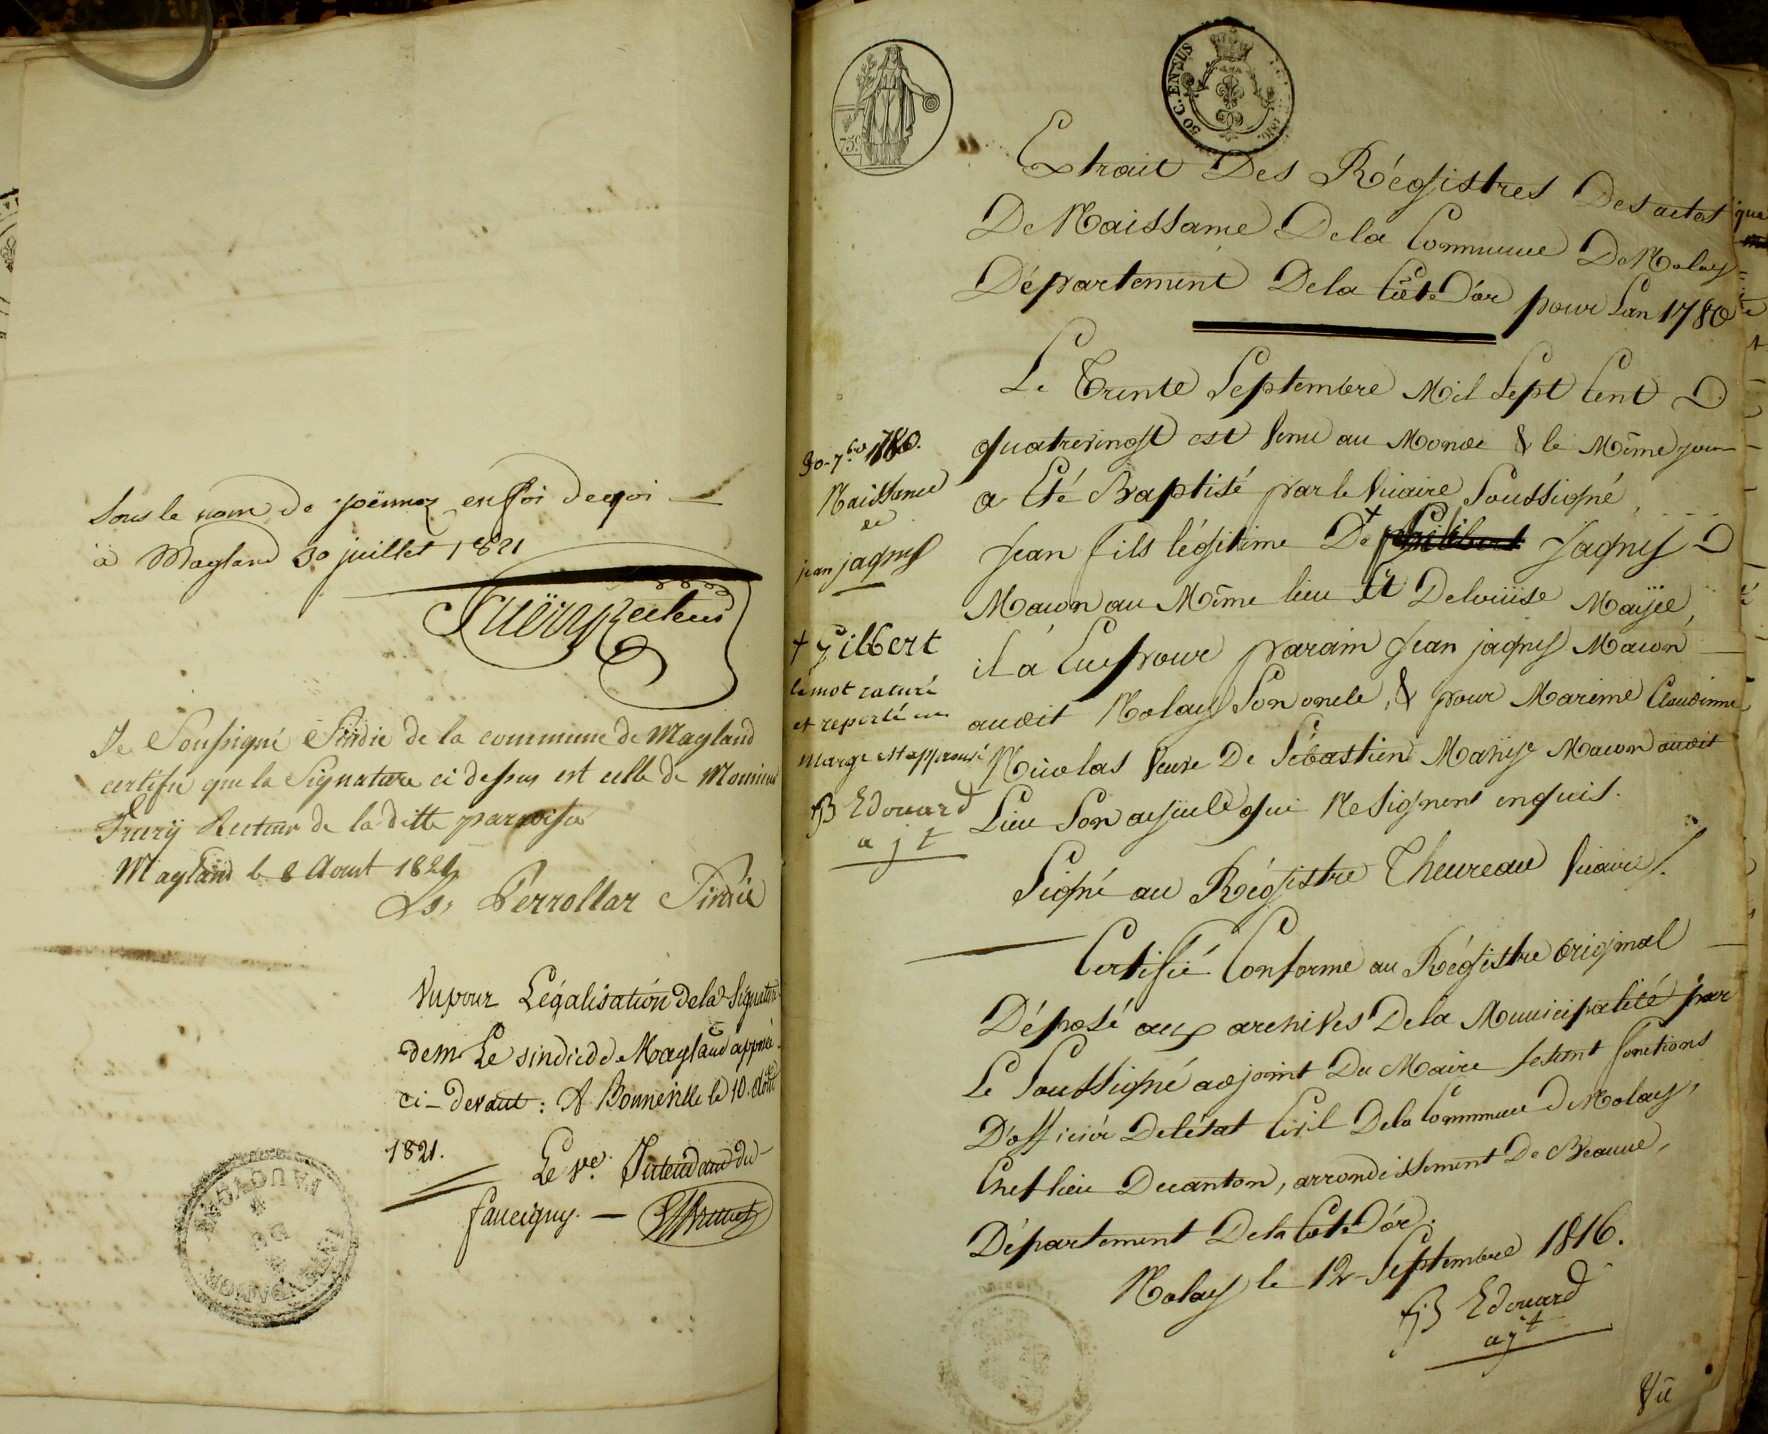 Sous le nom de joënnoz en foi de quoi
à Magland 30 juillet 1821
Recteur
Je Soussigné Sindic de la commune de Magland
certifie que la Signature ci dessus est celle de Monsieur
Recteur de la ditte parroisse
Magland le 8 Aoust 1821
Perrollaz Sindic
Vu pour Légalisation de la Signature
de mr Le sindic de Magland apposée
ci-devant : A Bonneville le 10 Août
1821.
Le Ve. Intendant du
faucigny. —
75 c
50 C. EN SUS
Extrait Des Régistres Des actes
De Naissance De la Commune De Nolay
Département De la Côte D'or pour Lan 1780
Le Trente Septembre Mil Sept Cent
quatrevingt est Venu au Monde & le Même jour
a Eté Baptisé par le Vicaire Soussigné,
Jean fils légitime De + Jagney
Macon au Même lieu Et De Louise
il a Eu pour parain Jean jagney Macon
audit Nolay Son oncle, & pour Marene Claudinne
Nicolas Veuve De Sébastien Macon audit
Lieu Son ayeule qui Ne Signent enquis.
Signé au Régistre Theureau Vicaire.
Certifié Conforme au Régistre original
Déposé aux archives De la Municipalité par
Le Soussigné adjoint Du Maire fesant fonctions
D'officier De létat Civil De la Commune De Nolay,
Chef lieu De canton, arrondissement De Beaune,
Département De la Côte D'or.
Nolay le 12 Septembre 1816.
Edouard
ajt
Vu
30 7bre 1780.
Naissance
de
jean jagney
+ Gilbert
le mot raturé
et reporté en
marge est approuvé
Edouard
ajt